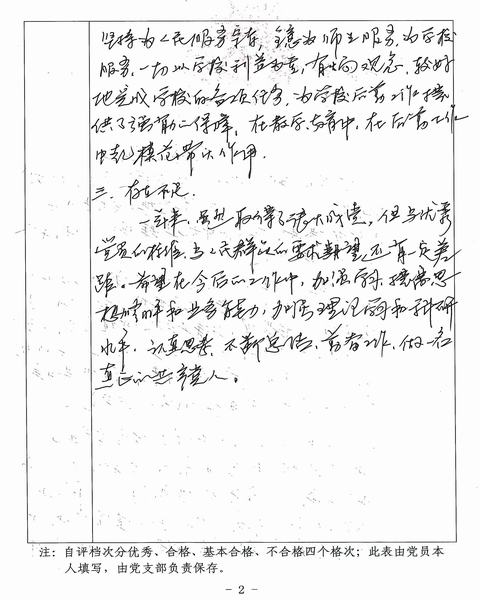 坚持为人民服务宗旨,全意为师生服务,为学校
服务,一切以学校利益为重,有大局观念,较好
地完成学校的各项任务,为学校后勤工作提
供了强有力保障,在教学教育中,在后勤工作
中起模范带头作用.
三、存在不足.
一年来,虽然取得了诸大成绩,但与优秀
党员的标准,与人民群众的要求期望还有一定差
距。希望在今后的工作中,加强学习,提高思
想水平和业务能力,加强理论学习和科研
水平,认真思考,不断总结,勤奋工作,做一名
真正的共产党人。
注:自评档次分优秀、合格、基本合格、不合格四个格次;此表由党员本
人填写,由党支部负责保存。
- 2 -